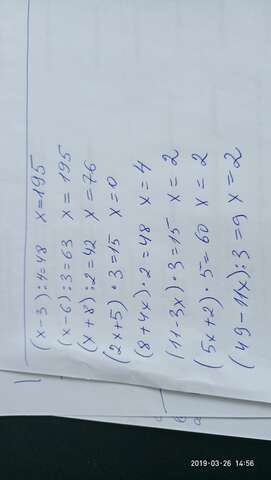 (x-3):4=48 x=195
(x-6):3=63 x=195
(x+8):2=42 x=76
(2x+5)·3=15 x=0
(8+4x)·2=48 x=4
(11-3x)·3=15 x=2
(5x+2)·5=60 x=2
(49-11x):3=9 x=2
2019-03-26 14:56